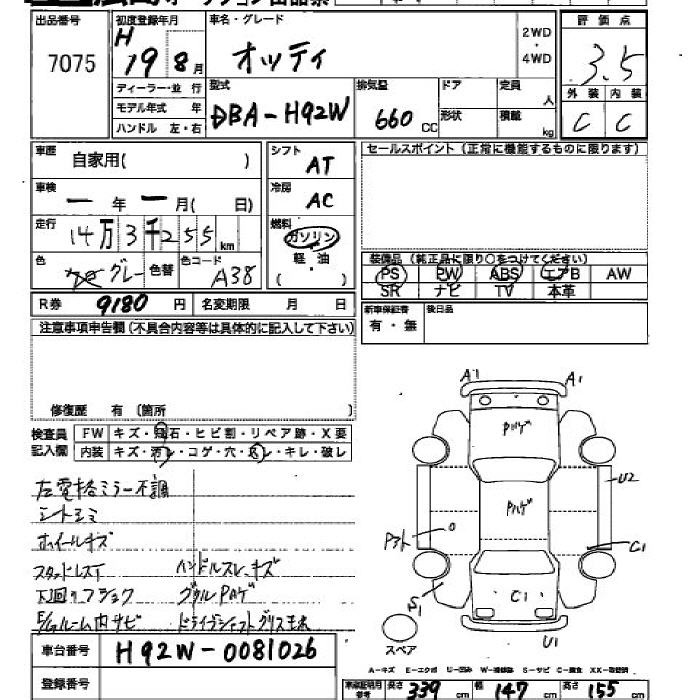 出品番号
7075
初度登録年月
H
19 8月
車名・グレード
オッティ
2WD
・
4WD
評価点
3.5
ディーラー・並 行
モデル年式 年
ハンドル 左・右
型式
DBA-H92W
排気量
660 CC
ドア
形状
定員
人
積載
kg
外装 内装
C C
車歴
自家用( )
シフト
AT
セールスポイント(正常に機能するものに限ります)
車検
一 年 一 月( 日)
冷房
AC
走行
14万3千255km
燃料
ガソリン
軽・油
( )
色
グレー
色替
色コード
A38
装備品(純正品に限り○をつけてください)
PS PW ABS エアB AW
SR ナビ TV 本革
R券 9180 円 名変期限 月 日
新車保証書
有・無
後日品
注意事項申告欄(不具合内容等は具体的に記入して下さい)
修復歴 有 (箇所 )
検査員
記入欄
FW キズ・飛石・ヒビ割・リペア跡・X要
内装 キズ・汚レ・コゲ・穴・スレ・キレ・破レ
左電格ミラー不調
シートシミ
ホイールキズ
スタッドレスT ハンドルスレ、キズ
下回りフショク
E/gルーム内サビ
A1 A1
U2
C1
C1
S1
U1
スペア
車台番号 H92W-0081026
登録番号
A-キズ E-エクボ U-凹み W-補修跡 S-サビ C-腐食 XX-取替済
車庫証明用
参考
長さ 339 cm 幅 147 cm 高さ 155 cm